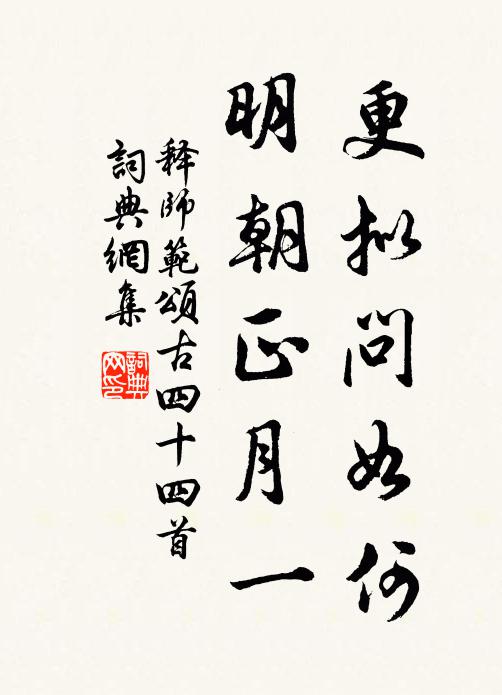 更拟问如何
明朝正月一
释师範頌古四十四首
詞典網集
詞典网印